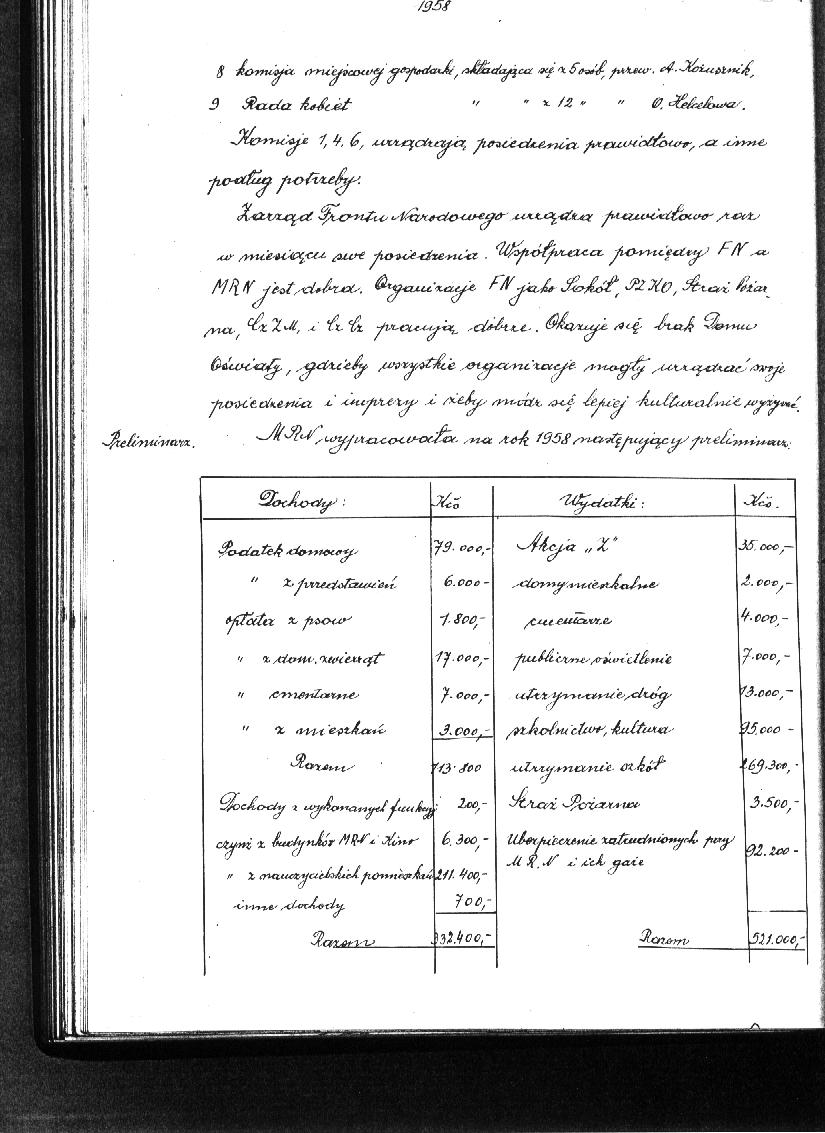 1958
8 komisja miejscowej gospodarki, składająca się z 5 osób, przew. A. Kożusznik,
9 Rada kobiet " " z 12 " " O. Helcelowa.
Komisje 1, 4. 6, urządzają posiedzenia prawidłowo, a inne
podług potrzeby.
Zarząd Frontu Narodowego urządza prawidłowo raz
w miesiącu swe posiedzenia. Współpraca pomiędzy FN a
MRN jest dobra. Organizacje FN jako Sokół, PZKO, Straż Pożar,
na, Cz Z M, i Cz Cz pracują dobrze. Okazuje się brak Domu
Oświaty, gdzieby wszystkie organizacje mogły urządzać swoje
posiedzenia i imprezy i żeby módz się lepiej kulturalnie wyżywć.
Preliminarz. MRN wypracowała na rok 1958 następujący preliminarz:
Dochody: Kčs Wydatki: Kčs.
Podatek domowy 79.000,- Akcja „Z" 35.000,-
" z przedstawień 6.000- domy mieszkalne 2.000,-
opłata z psow 1.800,- cmentarze 4.000,-
" z dom. zwierząt 17.000,- publiczne oświetlenie 7.000,-
" cmentarne 7.000,- utrzymanie dróg 13.000,-
" z mieszkań 3.000,- szkolnictwo, kultura 95.000 -
Razem 113.800 utrzymanie szkół 269.300,-
Dochody z wykonanych funkcyj 200,- Straż Pożarna 3.500,-
czynż z budynków MRN i Kino 6.300,- Ubezpieczenie zatrudnionych przy
M R. N i ich gaże 92.200-
" z nauczycielskich pomieszkań 211.400,-
inne dochody 700,-
Razem 332.400,- Razem 521.000,-